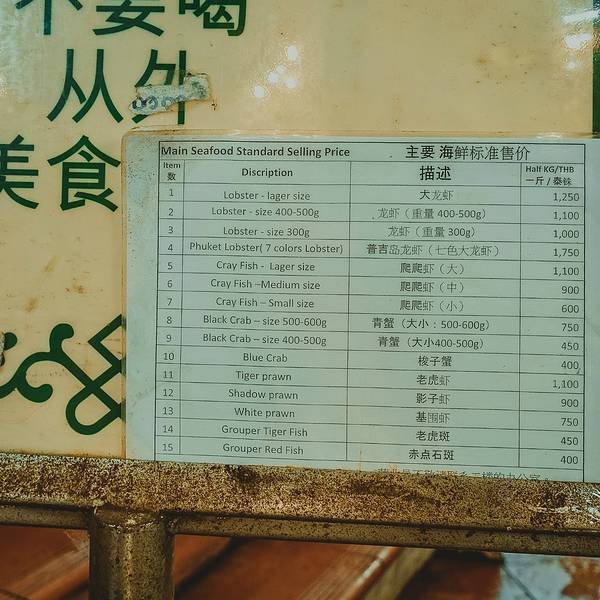 不要喝
从外
美食
Main Seafood Standard Selling Price 主要 海鲜标准售价
Item 数 Discription 描述 Half KG/THB 一斤 / 泰铢
1 Lobster - lager size 大龙虾 1,250
2 Lobster - size 400-500g 龙虾（重量 400-500g） 1,100
3 Lobster - size 300g 龙虾（重量 300g） 1,000
4 Phuket Lobster( 7 colors Lobster) 普吉岛龙虾（七色大龙虾） 1,750
5 Cray Fish - Lager size 爬爬虾（大） 1,100
6 Cray Fish –Medium size 爬爬虾（中） 900
7 Cray Fish – Small size 爬爬虾（小） 600
8 Black Crab – size 500-600g 青蟹（大小：500-600g） 750
9 Black Crab – size 400-500g 青蟹（大小400-500g） 450
10 Blue Crab 梭子蟹 400
11 Tiger prawn 老虎虾 1,100
12 Shadow prawn 影子虾 900
13 White prawn 基围虾 750
14 Grouper Tiger Fish 老虎斑 450
15 Grouper Red Fish 赤点石斑 400